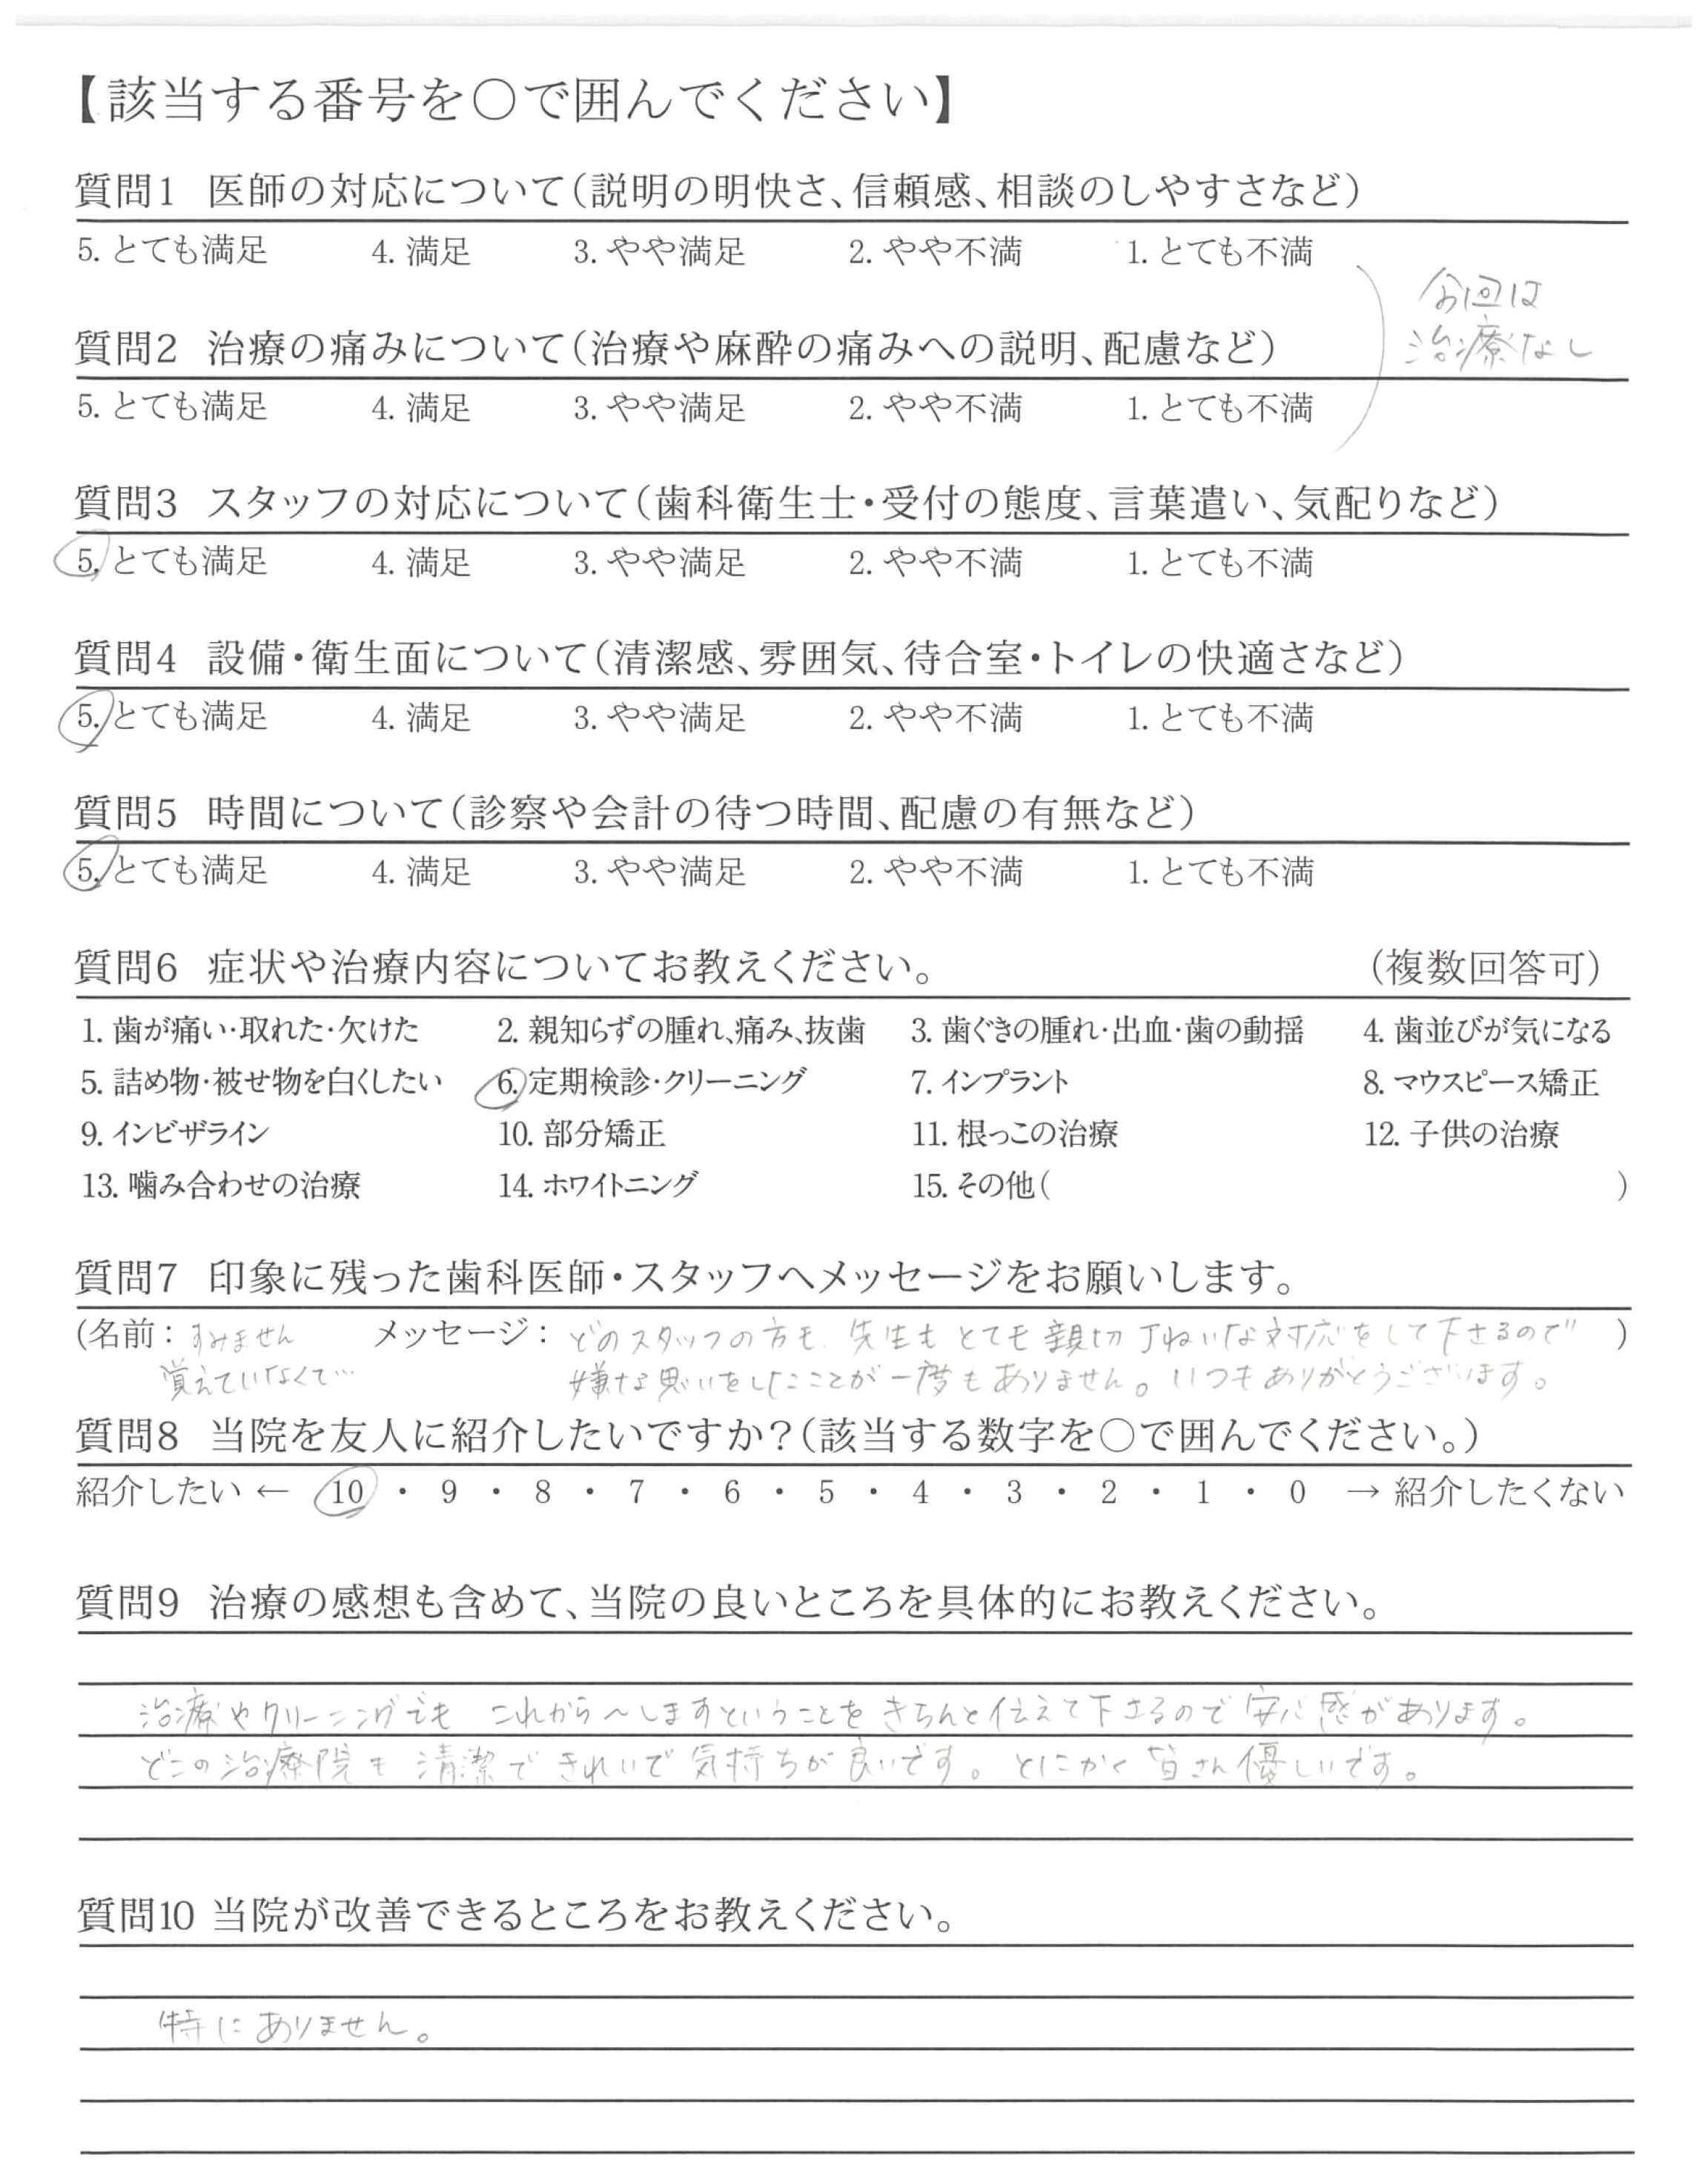 【該当する番号を○で囲んでください】
質問1 医師の対応について(説明の明快さ、信頼感、相談のしやすさなど)
5. とても満足 4. 満足 3. やや満足 2. やや不満 1. とても不満
今回は
治療なし
質問2 治療の痛みについて(治療や麻酔の痛みへの説明、配慮など)
5. とても満足 4. 満足 3. やや満足 2. やや不満 1. とても不満
質問3 スタッフの対応について(歯科衛生士・受付の態度、言葉遣い、気配りなど)
5. とても満足 4. 満足 3. やや満足 2. やや不満 1. とても不満
質問4 設備・衛生面について(清潔感、雰囲気、待合室・トイレの快適さなど)
5. とても満足 4. 満足 3. やや満足 2. やや不満 1. とても不満
質問5 時間について(診察や会計の待つ時間、配慮の有無など)
5. とても満足 4. 満足 3. やや満足 2. やや不満 1. とても不満
質問6 症状や治療内容についてお教えください。 (複数回答可)
1. 歯が痛い・取れた・欠けた 2. 親知らずの腫れ、痛み、抜歯 3. 歯ぐきの腫れ・出血・歯の動揺 4. 歯並びが気になる
5. 詰め物・被せ物を白くしたい 6. 定期検診・クリーニング 7. インプラント 8. マウスピース矯正
9. インビザライン 10. 部分矯正 11. 根っこの治療 12. 子供の治療
13. 噛み合わせの治療 14. ホワイトニング 15. その他( )
質問7 印象に残った歯科医師・スタッフへメッセージをお願いします。
(名前：すみません メッセージ：どのスタッフの方も 先生も とても親切丁ねいな対応をして下さるので )
覚えていなくて… 嫌な思いをしたことが一度もありません。いつもありがとうございます。
質問8 当院を友人に紹介したいですか？(該当する数字を○で囲んでください。)
紹介したい ← 10 ・ 9 ・ 8 ・ 7 ・ 6 ・ 5 ・ 4 ・ 3 ・ 2 ・ 1 ・ 0 → 紹介したくない
質問9 治療の感想も含めて、当院の良いところを具体的にお教えください。
治療やクリーニングでも これから〜しますということを きちんと伝えて下さるので安心感があります。
どこの治療院も 清潔で きれいで 気持ちが良いです。とにかく 皆さん優しいです。
質問10 当院が改善できるところをお教えください。
特にありません。